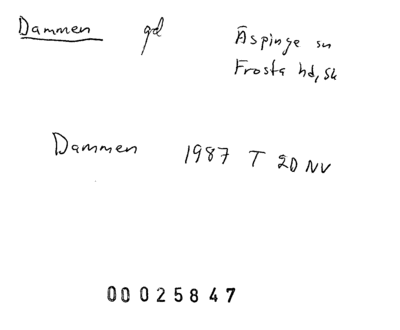 Dammen gd Äspinge sn
Frosta hd, Sk
Dammen 1987 T 20 NV
00025847